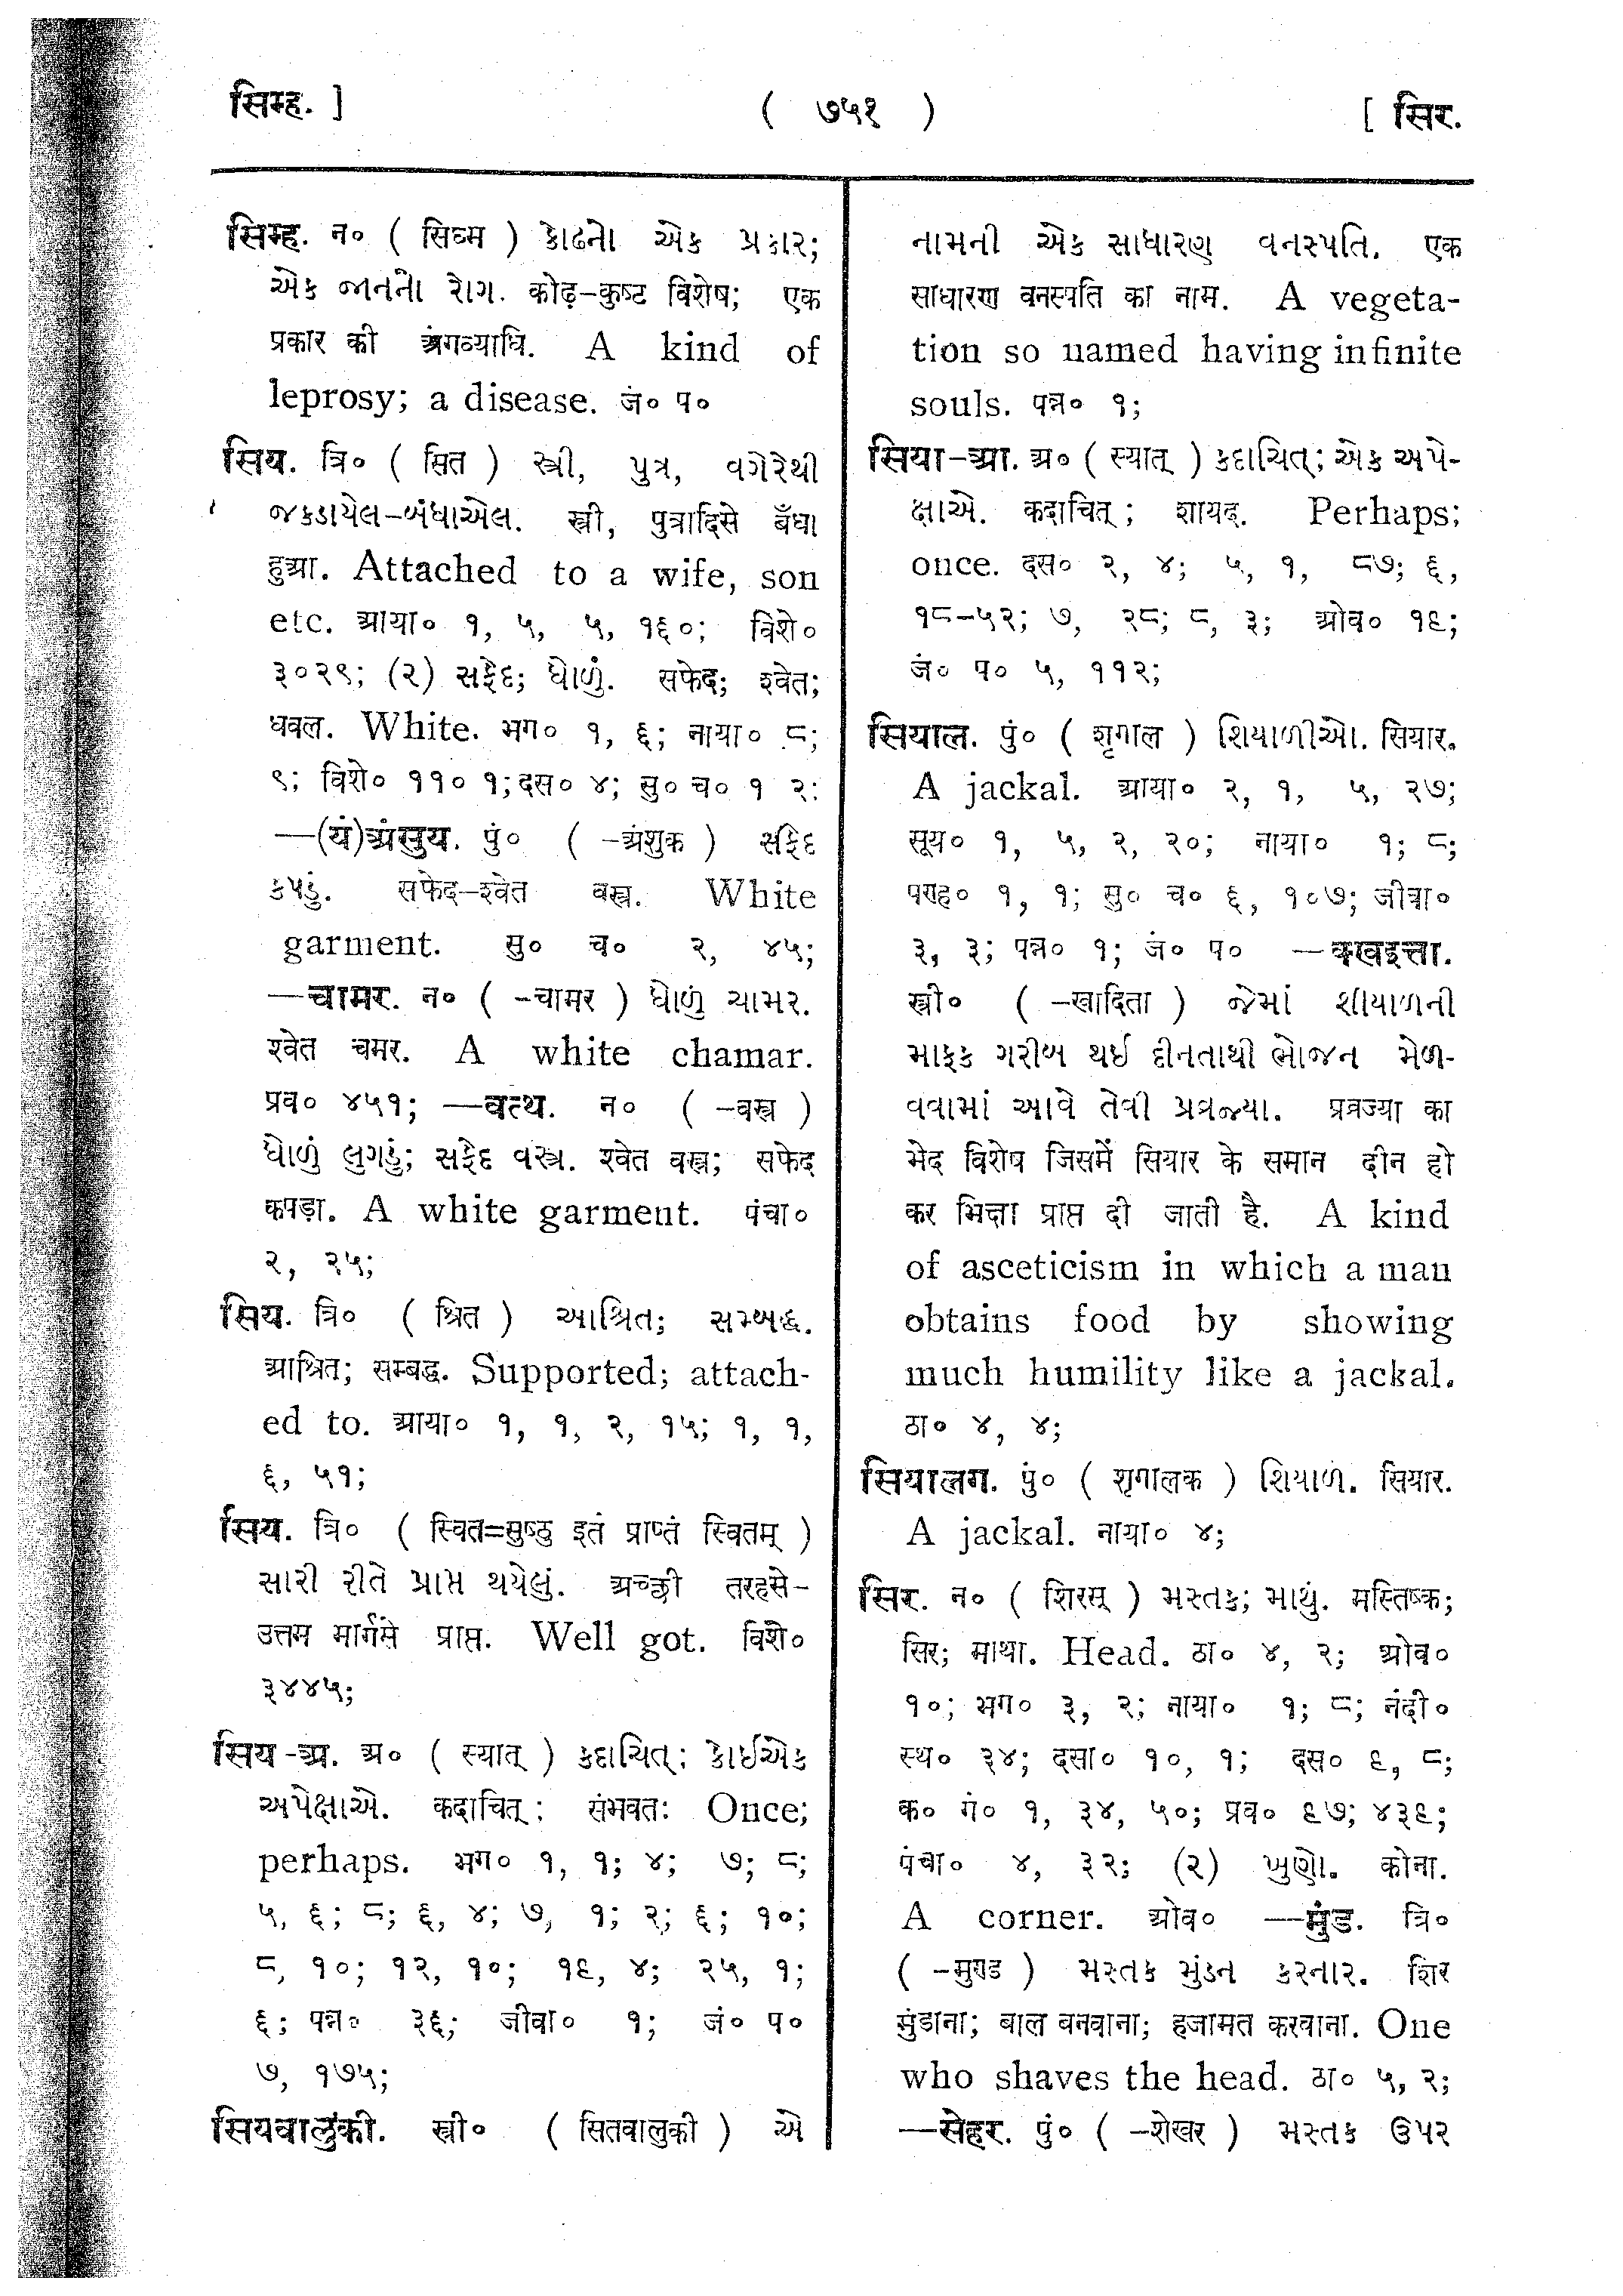 सिम्ह. ]
( ७५१ )
[ सिर.
सिम्ह. न० ( सिध्म ) કોઢનો એક પ્રકાર;
એક જાતનો રોગ. कोढ़-कुष्ट विशेष; एक
प्रकार की अंगव्याधि. A kind of
leprosy; a disease. जं० प०
सिय. त्रि० ( सित ) સ્ત્રી, પુત્ર, વગેરેથી
જકડાયેલ-બંધાએલ. स्त्री, पुत्रादिसे बँधा
हुआ. Attached to a wife, son
etc. आया० १, ५, ५, १६०; विशे०
३०२९; (२) સફેદ; ધોળું. सफेद; श्वेत;
धवल. White. भग० १, ६; नाया० ८;
९; विशे० ११० १; दस० ४; सु० च० १ २:
—(यं)अंसुय. पुं० ( -अंशुक ) સફેદ
કપડું. सफेद-श्वेत वस्त्र. White
garment. सु० च० २, ४५;
—चामर. न० ( -चामर ) ધોળું ચામર.
श्वेत चमर. A white chamar.
प्रव० ४५१; —वत्थ. न० ( -वस्त्र )
ધોળું લુગડું; સફેદ વસ્ત્ર. श्वेत वस्त्र; सफेद
कपड़ा. A white garment. पंचा०
२, २५;
सिय. त्रि० ( श्रित ) આશ્રિત; સમ્બદ્ધ.
आश्रित; सम्बद्ध. Supported; attach-
ed to. आया० १, १, २, १५; १, १,
६, ५१;
सिय. त्रि० ( स्वित=सुष्ठु इतं प्राप्तं स्वितम् )
સારી રીતે પ્રાપ્ત થયેલું. अच्छी तरहसे-
उत्तम मार्गसे प्राप्त. Well got. विशे०
३४४५;
सिय-अ. अ० ( स्यात् ) કદાચિત્; કોઈએક
અપેક્ષાએ. कदाचित्; संभवतः Once;
perhaps. भग० १, १; ४; ७; ८;
५, ६; ८; ६, ४; ७, १; २; ६; १०;
८, १०; १२, १०; १६, ४; २५, १;
६; पन्न० ३६; जीवा० १; जं० प०
७, १७५;
सियवालुंकी. स्त्री० ( सितवालुकी ) એ
નામની એક સાધારણ વનસ્પતિ. एक
साधारण वनस्पति का नाम. A vegeta-
tion so named having infinite
souls. पन्न० १;
सिया-आ. अ० ( स्यात् ) કદાચિત્; એક અપે-
ક્ષાએ. कदाचित्; शायद. Perhaps;
once. दस० २, ४; ५, १, ८७; ६,
१८-५२; ७, २८; ८, ३; ओव० १६;
जं० प० ५, ११२;
सियाल. पुं० ( शृगाल ) શિયાળીઓ. सियार.
A jackal. आया० २, १, ५, २७;
सूय० १, ५, २, २०; नाया० १; ८;
पण्ह० १, १; सु० च० ६, १०७; जीवा०
३, ३; पन्न० १; जं० प० —क्खइत्ता.
स्त्री० ( -खादिता ) જેમાં શીયાળની
માફક ગરીબ થઈ દીનતાથી ભોજન મેળ-
વવામાં આવે તેવી પ્રવ્રજ્યા. प्रव्रज्या का
भेद विशेष जिसमें सियार के समान दीन हो
कर भिक्षा प्राप्त दी जाती है. A kind
of asceticism in which a man
obtains food by showing
much humility like a jackal.
ठा० ४, ४;
सियालग. पुं० ( शृगालक ) શિયાળ. सियार.
A jackal. नाया० ४;
सिर. न० ( शिरस् ) મસ્તક; માથું. मस्तिष्क;
सिर; माथा. Head. ठा० ४, २; ओव०
१०; भग० ३, २; नाया० १; ८; नंदी०
स्थ० ३४; दसा० १०, १; दस० ६, ८;
क० गं० १, ३४, ५०; प्रव० ६७; ४३६;
पंचा० ४, ३२; (२) ખુણો. कोना.
A corner. ओव० —मुंड. त्रि०
( -मुण्ड ) મસ્તક મુંડન કરનાર. शिर
मुंडाना; बाल बनवाना; हजामत करवाना. One
who shaves the head. ठा० ५, २;
—सेहर. पुं० ( -शेखर ) મસ્તક ઉપર